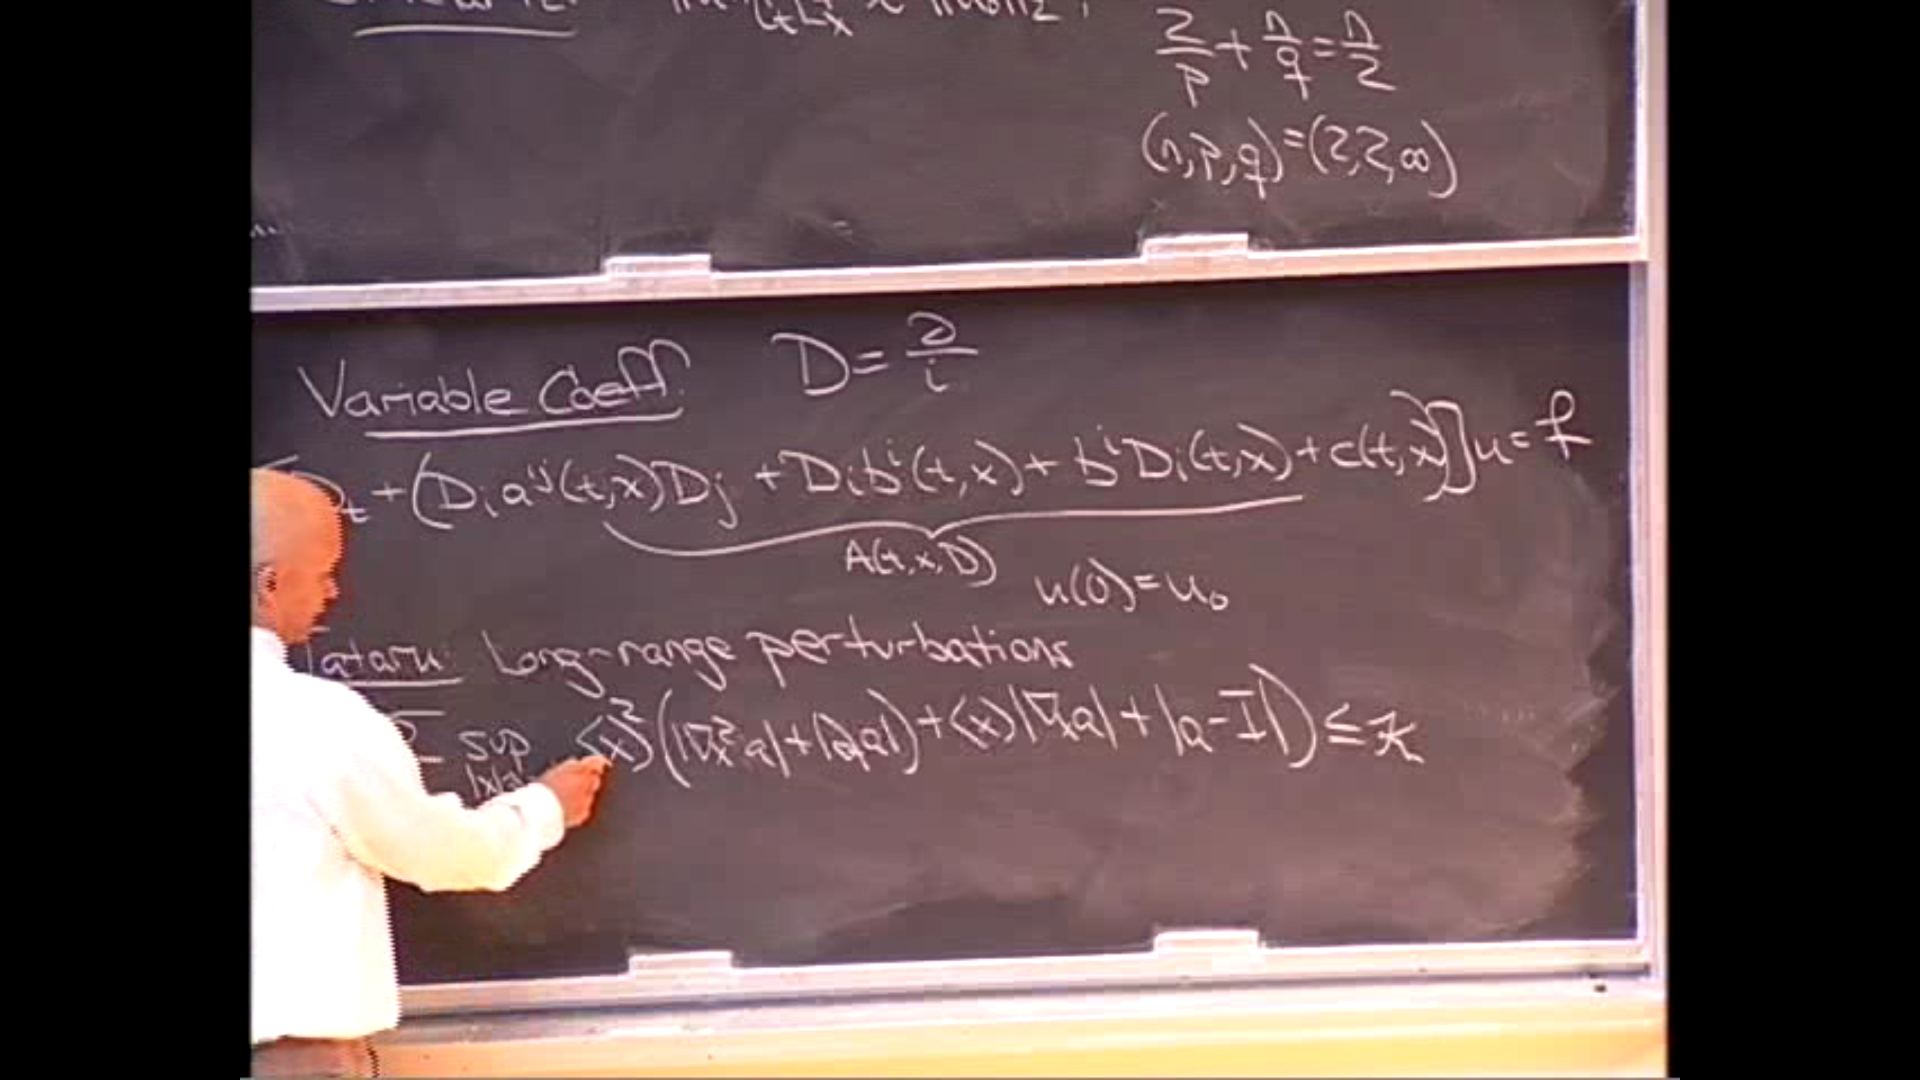 2/p + n/q = n/2
(n,p,q)=(2,2,∞)
Variable Coeff. D = ∂/i
D_t + (D_i a^{ij}(t,x)D_j + D_i b^i(t,x) + b^i D_i(t,x) + c(t,x)]u = f
A(t,x,D)
u(0)=u_0
Tataru: Long-range perturbations
sup ⟨x⟩^2(|∇_x^2 a|+|∂_t a|)+⟨x⟩|∇_x a|+|a-I|) ≤